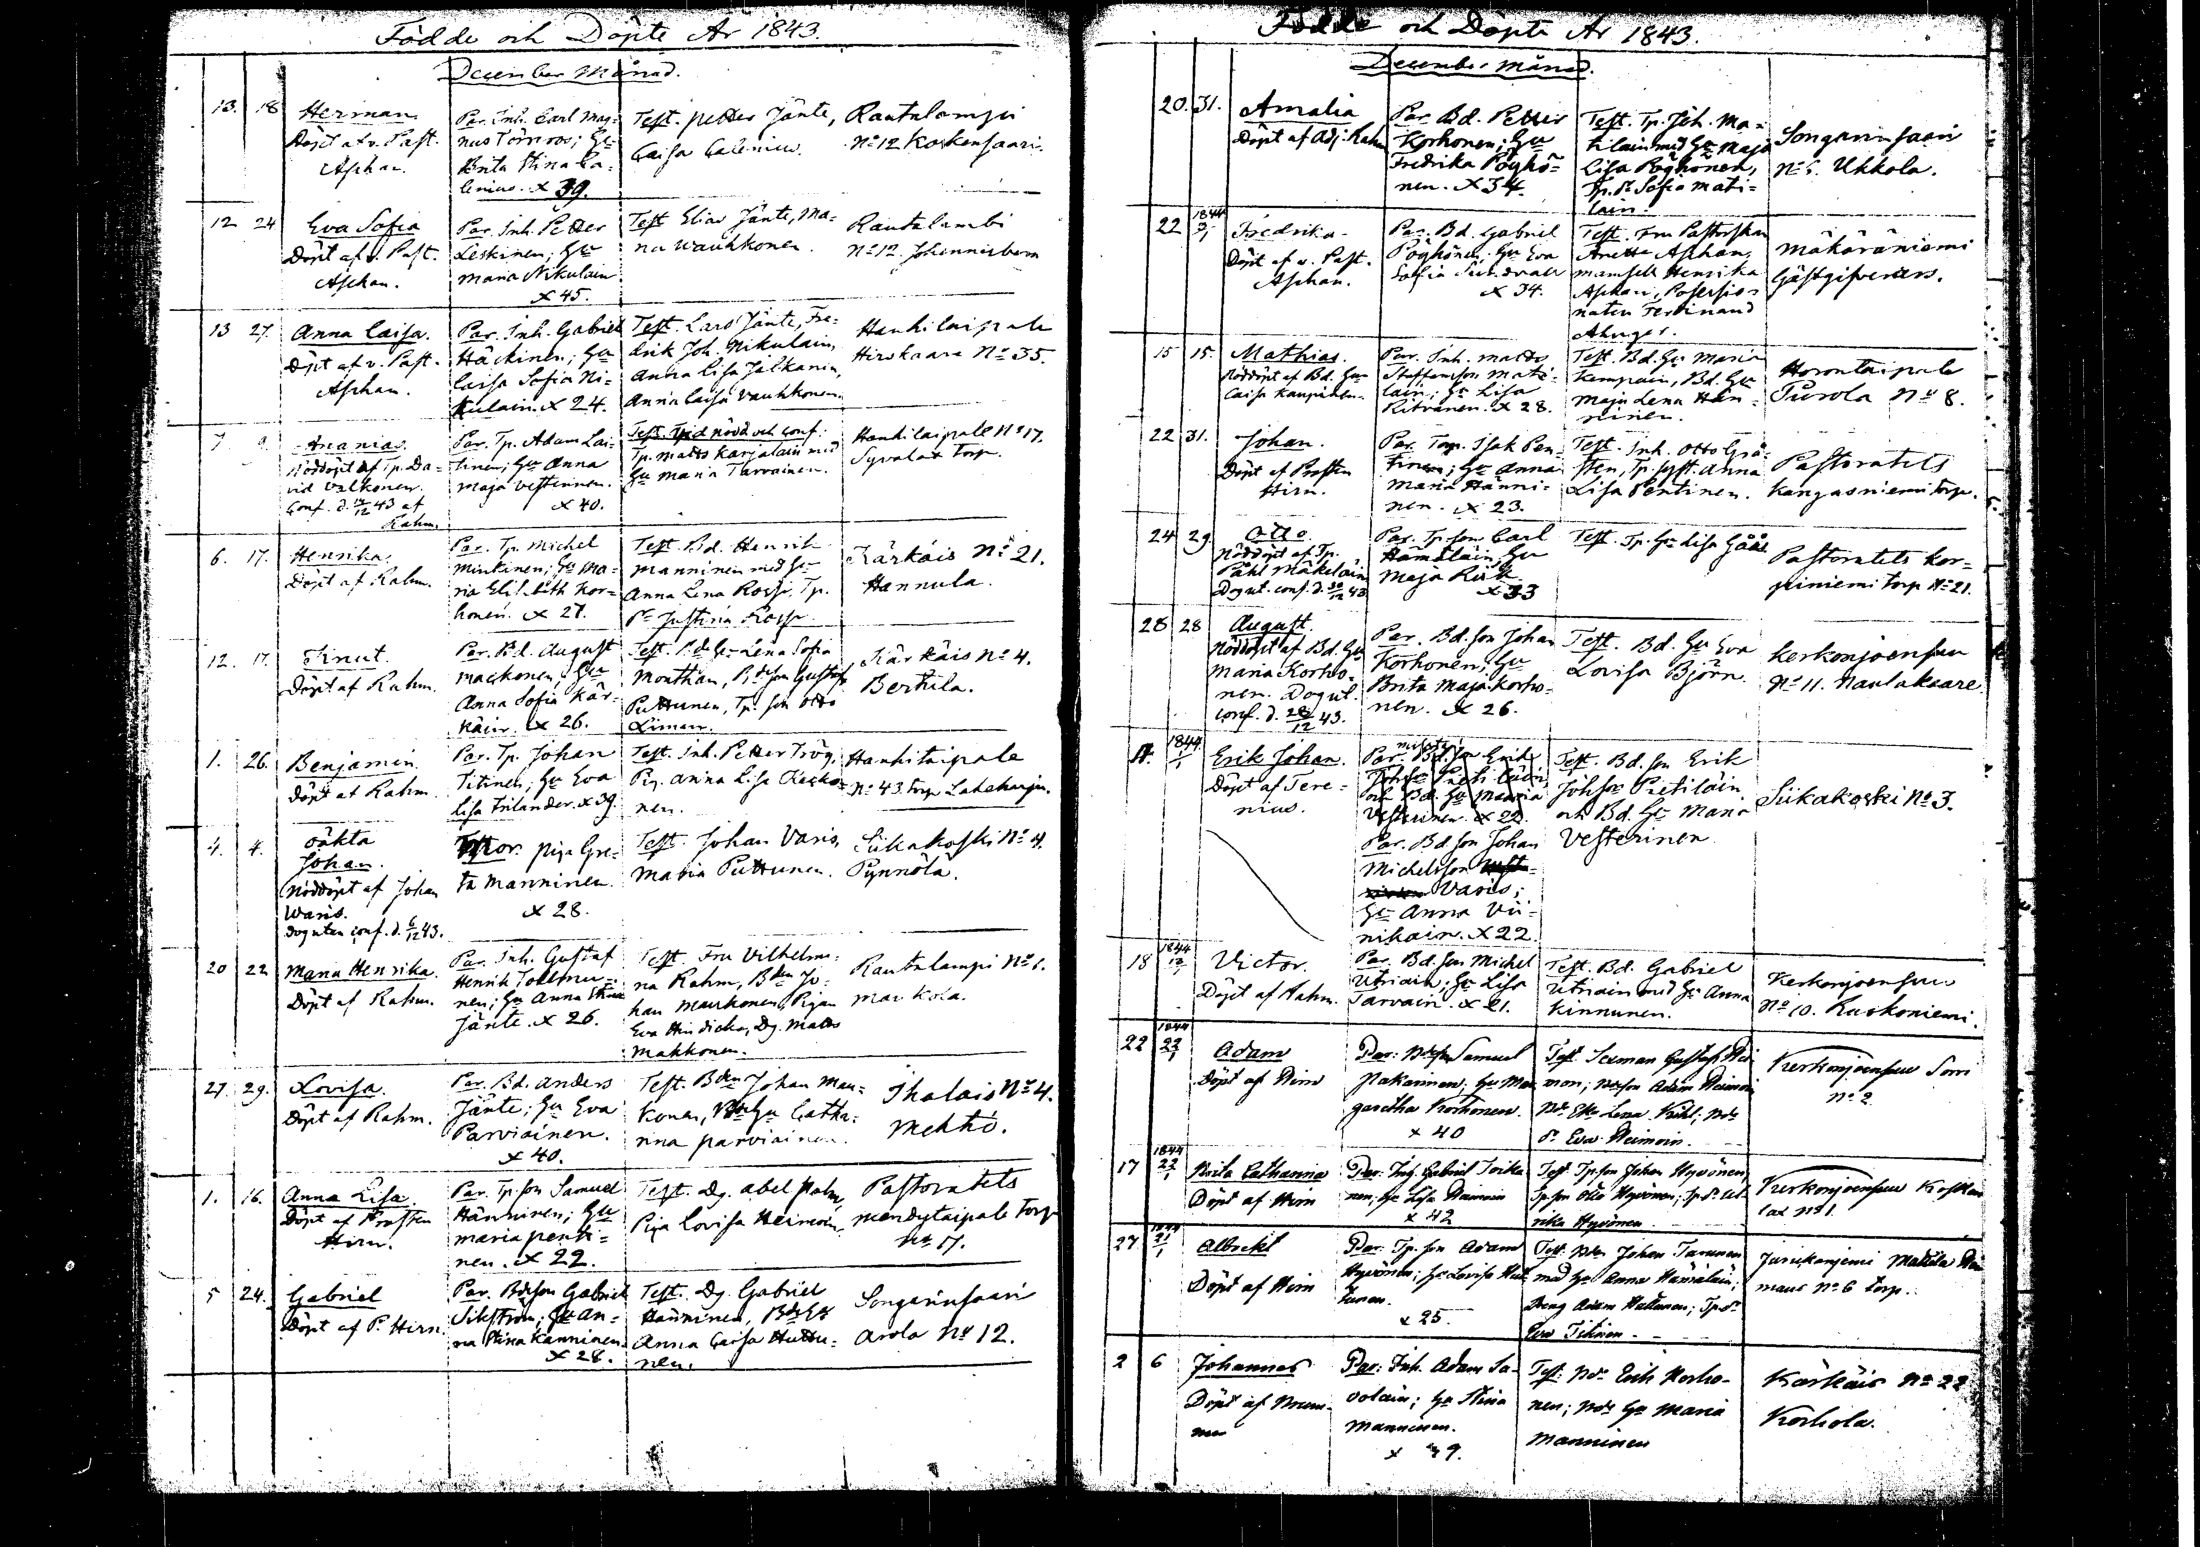 Födde och Döpte År 1843.
December Månad.
13. 18 Herman
Döpt af v. Past.
Asphan.
Par. Inh. Carl Mag=
nus Törnroos; Hu
Brita Stina Ca=
lenius. x 39.
Test. Petter Jänte,
Caisa Calenius.
Rautalampi
No 12 Koskensaari.
12 24 Eva Sofia
Döpt af v. Past.
Asphan.
Par. Inh. Petter
Leskinen; Hu
Maria Nikulain
x 45.
Test Elias Jänte, Ma=
ria Wauhkonen.
Rautalambi
No 12. Johannisberg
13 27. Anna Caisa.
Döpt af v. Past.
Asphan.
Par. Inh. Gabriel
Häckinen; Hu
Caisa Sofia Ni=
kulain. x 24.
Test. Lars Jänte, Fre=
drik Joh. Nikulain,
Anna Lisa Jalkanen,
Anna Caisa Vauhkonen.
Hankitaipale
Hirskaara No 35.
7 9 Ananias.
Nöddöpt af Tp. Da=
vid Valkonen.
Conf. d. 43 af
Rahm.
Par. Tp. Adam Lai=
tinen; Hu Anna
Maja Vesterinen.
x 40.
Test. Tp. d nöddöpt och Conf.
Tp. Matts Karjalain med
Hu Maria Tarvainen.
Hankitaipale No 17.
Syvälax Torp.
6. 17. Henrika
Döpt af Rahm.
Par. Tp. Michel
Minkinen; Hu Ma=
ria Elisabeth Kor=
honen. x 27.
Test. Bd. Henrik
Manninen med Hu
Anna Lena Rossi, Tp.
Dr Justina Rossi.
Kärkäis No 21.
Hannula.
12. 17. Knut.
Döpt af Rahm.
Par. Bd. August
Mackonen; Hu
Anna Sofia Kär=
käin. x 26.
Test. Bd. Hu Lena Sofia
Monthan, Bd. Son Gustaf
Puttunen, Tp. son Otto
Liman.
Kärkäis No 4.
Berkila.
1. 26. Benjamin.
Döpt af Rahm.
Par. Tp. Johan
Titinen; Hu Eva
Lisa Frilander. x 39.
Test. Inh. Petter Trög,
Pig. Anna Lisa Kecko=
nen.
Hankitaipale
No 43. Torp Lakeharju.
4. 4. Oäkta
Johan.
Nöddöpt af Johan
Waris.
Doguten conf. d. 6/12 43.
Mor. Piga Gre=
ta Manninen.
x 28.
Test. Johan Varis,
Maria Puttunen.
Siikakoski No 4.
Pynnölä.
20 22 Maria Henrika.
Döpt af Rahm.
Par. Inh. Gustaf
Henrik Tollmu=
nen; Hu Anna Stina
Jänte. x 26.
Test. Fru Vilhelmi=
na Rahm, Bden Jo=
han Maukonen, Pigan
Eva Hindicka, Dg. Matts
Makkonen.
Rautalampi No 1.
Markola.
27. 29. Lovisa.
Döpt af Rahm.
Par. Bd. Anders
Jänte; Hu Eva
Parviainen.
x 40.
Test. Bden Johan Mau=
konen, Bd. Hu Catha=
rina Parviainen.
Ihalais No 4.
Mehtiö.
1. 16. Anna Lisa.
Döpt af Prosten
Hirn.
Par. Tp. Son Samuel
Hänninen; Hu
Maria Penti=
nen. x 22.
Test. Dg. Abel Palm,
Piga Lovisa Heimoin.
Pastoratets
Mendytaipale Torp
No 17.
5 24. Gabriel
Döpt af P. Hirn.
Par. Bdeson Gabriel
Sikström; Hu An=
na Stina Känninen.
x 28.
Test. Dg. Gabriel
Hänninen, Bd Hu
Anna Caisa Huttu=
nen.
Songarinsaari
Arola No 12.
Födde och Döpte År 1843.
December Månad.
20. 31. Amalia
Döpt af Adj. Rahm
Par. Bd. Petter
Korhonen; Hu
Fredrika Pöyhö=
nen. x 34.
Test. Tp. Joh. Ma=
tilain med Hu Maja
Lisa Pöyhönen,
Tp. Dr Sofia Mati=
lain.
Songarinsaari
No 5. Ukkola.
22 1844 Fredrika.
Döpt af v. Past.
Asphan.
Par. Bd. Gabriel
Pöyhönen; Hu Eva
Sofia Sundvall
x 34.
Test. Fru Pastorskan
Anette Asphan,
Mamsell Henrika
Asphan, Possessio=
naten Ferdinand
Ahnger.
Mäkäräniemi
Gästgifveri.
15 15. Mathias.
Nöddöpt af Bd. Hu
Caisa Kaupinen.
Par. Inh. Matts
Staffansson Mati=
lain; Hu Lisa
Ritvanen. x 28.
Test. Bd. Hu Maria
Kempain, Bd. Hu
Maja Lena Hän=
ninen.
Horontaipale
Purola No 8.
22 31. Johan.
Döpt af Prosten
Hirn.
Par. Torp. Isak Pen=
tinen; Hu Anna
Maria Hänni=
nen. x 23.
Test. Inh. Otto Grå=
sten, Tp. syst. Anna
Lisa Pentinen.
Pastoratets
Kangasniemi Torp.
24 29 Otto.
Nöddöpt af Tp.
Påhl Mäkeläin
Dogut. conf. d. 30/12 43
Par. Tp. son Carl
Hämäläin; Hu
Maja Risk
x 33
Test. Tp. Hu Lisa Gåås
Pastoratets Kor=
piniemi Torp No 21.
28 28 August.
Nöddöpt af Bd. Hu
Maria Korho=
nen. Dogut.
conf. d. 28/12 43.
Par. Bd. Son Johan
Korhonen; Hu
Brita Maja Korho=
nen. x 26.
Test. Bd. Hu Eva
Lovisa Björn.
Kerkonjoensuu
No 11. Naulakaare
14. 1844 Erik Johan.
Döpt af Tere=
nius.
Par. Bd. Son Erik
Johsson Pietiläin
och Bd. Hu Maria
Vesterinen. x 22.
Par. Bd Son Johan
Michelsson
Varis;
Hu Anna Vii=
nikain. x 22.
Test. Bd. Son Erik
Johsson Pietiläin
och Bd. Hu Maria
Vesterinen.
Siikakoski No 3.
18 1844 Victor.
Döpt af Rahm.
Par. Bd. Son Michel
Utriain; Hu Lisa
Tarvain. x 21.
Test. Bd. Gabriel
Utriain med Hu Anna
Kinnunen.
Kerkonjoensuu
No 10. Ruokoniemi.
22 1844 22/1 Adam
Döpt af Hirn
Par: Bdeson Samuel
Pakarinen; Hu Mar
garetha Korhonen.
x 40
Test. Sexman Gustaf Hei
mon; Bdeson Adam Heimoin
Bde Eka Lena Kihl; Bde
Dr Eva Heimoin.
Kerkonjoensuu Torri
No 2
17 1844 22/1 Brita Catharina
Döpt af Hirn
Par: Inh. Gabriel Toika
nen; Hu Lisa Heimoin
x 42
Test Tpson Johan Hyvönen
Tpson Otto Hyvönen; Tp. Dr Ul=
rika Hyvönen
Kerkonjoensuu Koskee
lax No 1.
27 1844 21/1 Albrekt
Döpt af Hirn
Par: Tp. son Adam
Hyvönen; Hu Lovisa Hut
tunen.
x 25.
Test: Bden Johan Tarvanen
med Hu Anna Hämäläin;
Dreng Adam Hattunen; Tp. Dr
Eva Titinen.
Jussikanjemi Mattila
No 6 torp.
2 6 Johannes
Döpt af Brum=
mer
Par: Inh. Adam Sa=
volain; Hu Stina
Manninen.
x 39.
Test: Bde Erik Korho=
nen; Bde Hu Maria
Manninen
Kärkäis No 22
Korhola.